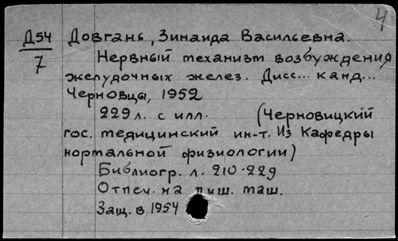 4
Д54 Довгань, Зинаида Васильевна.
7 Нервный механизм возбуждения
желудочных желез. Дисс... канд...
Черновцы, 1952
229 л. с илл. (Черновицкий
гос. медицинский ин-т. Из Кафедры
нормальной физиологии)
Библиогр. л. 210-229
Отпеч. на пиш. маш.
Защ. в 1954